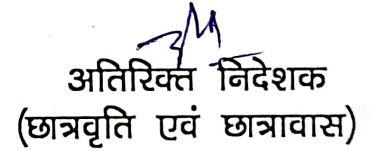 अतिरिक्त निदेशक
(छात्रवृति एवं छात्रावास)